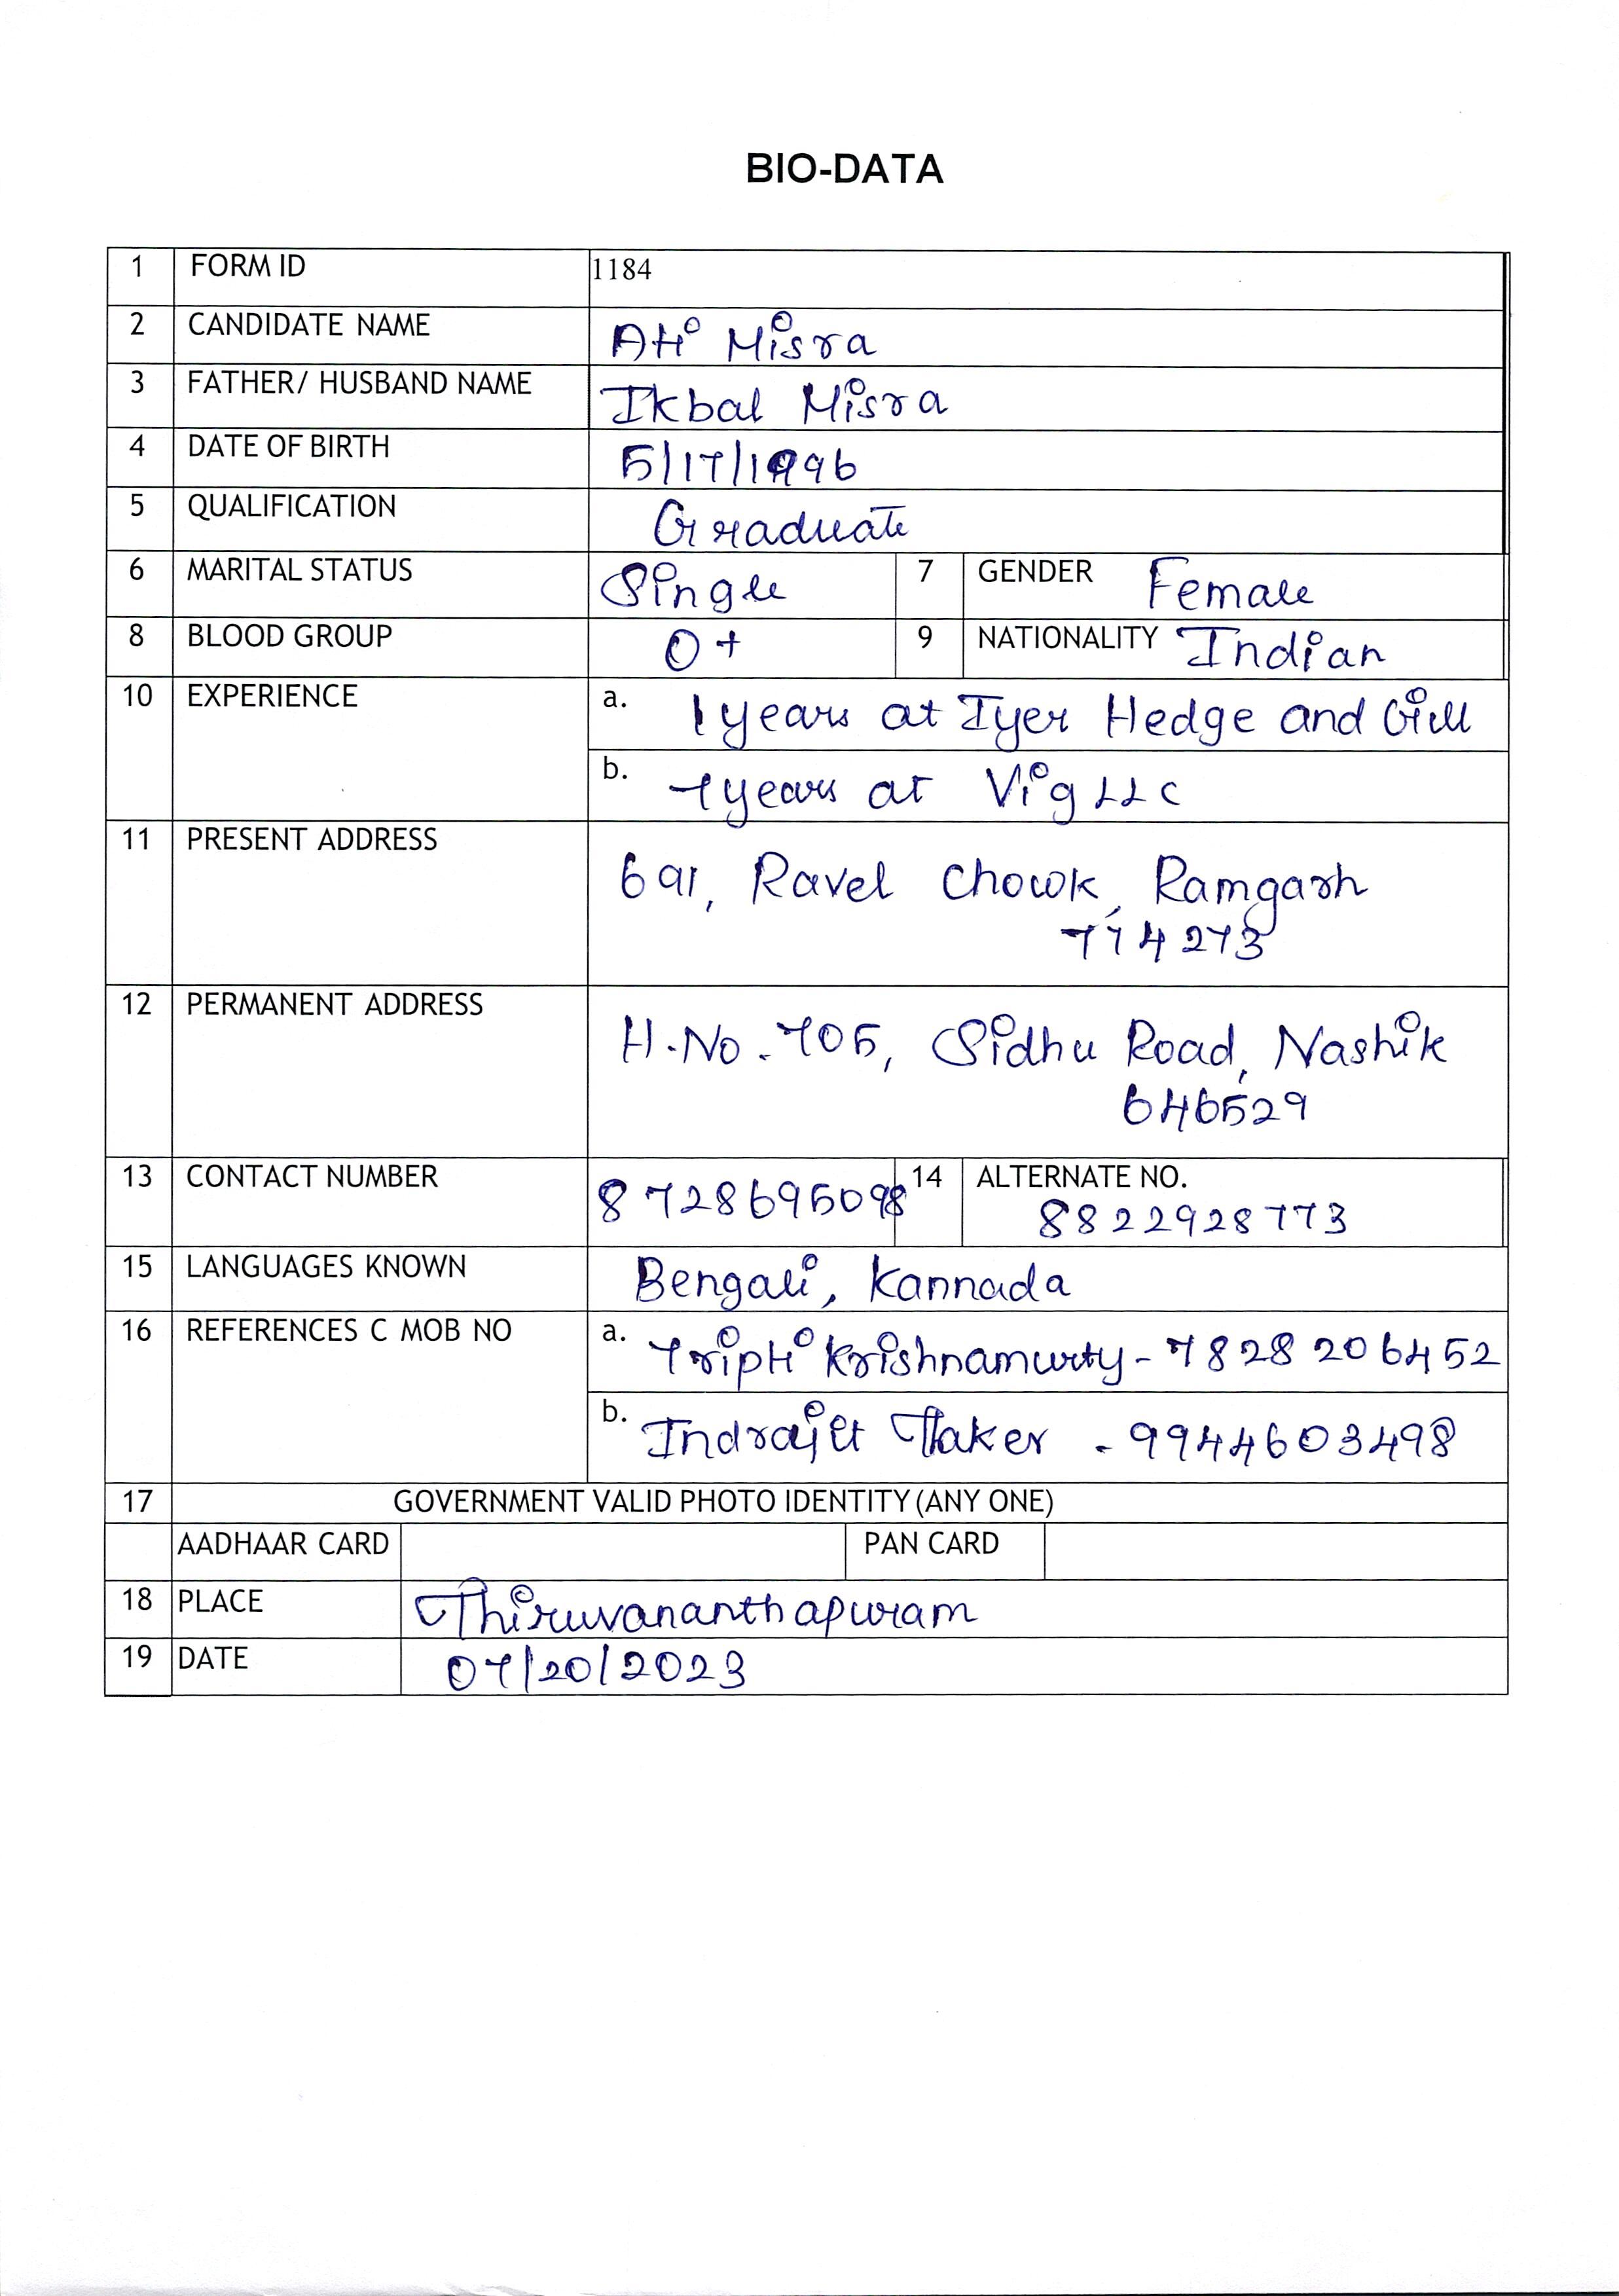 BIO-DATA
1 FORM ID 1184
2 CANDIDATE NAME Atti Misra
3 FATHER/ HUSBAND NAME Ikbal Misra
4 DATE OF BIRTH 5/17/1996
5 QUALIFICATION Graduate
6 MARITAL STATUS Single 7 GENDER Female
8 BLOOD GROUP O+ 9 NATIONALITY Indian
10 EXPERIENCE a. 1 years at Iyer Hedge and Gill
b. 7 years at Vig LLC
11 PRESENT ADDRESS
691, Ravel Chowk, Ramgarh
774273
12 PERMANENT ADDRESS
H.No. 705, Sidhu Road, Nashik
646529
13 CONTACT NUMBER 8728695098 14 ALTERNATE NO.
8822928773
15 LANGUAGES KNOWN Bengali, Kannada
16 REFERENCES C MOB NO a. Tripti Krishnamurty - 7828206452
b. Indrajit Thaker - 9944603498
17 GOVERNMENT VALID PHOTO IDENTITY (ANY ONE)
AADHAAR CARD PAN CARD
18 PLACE Thiruvananthapuram
19 DATE 07/20/2023